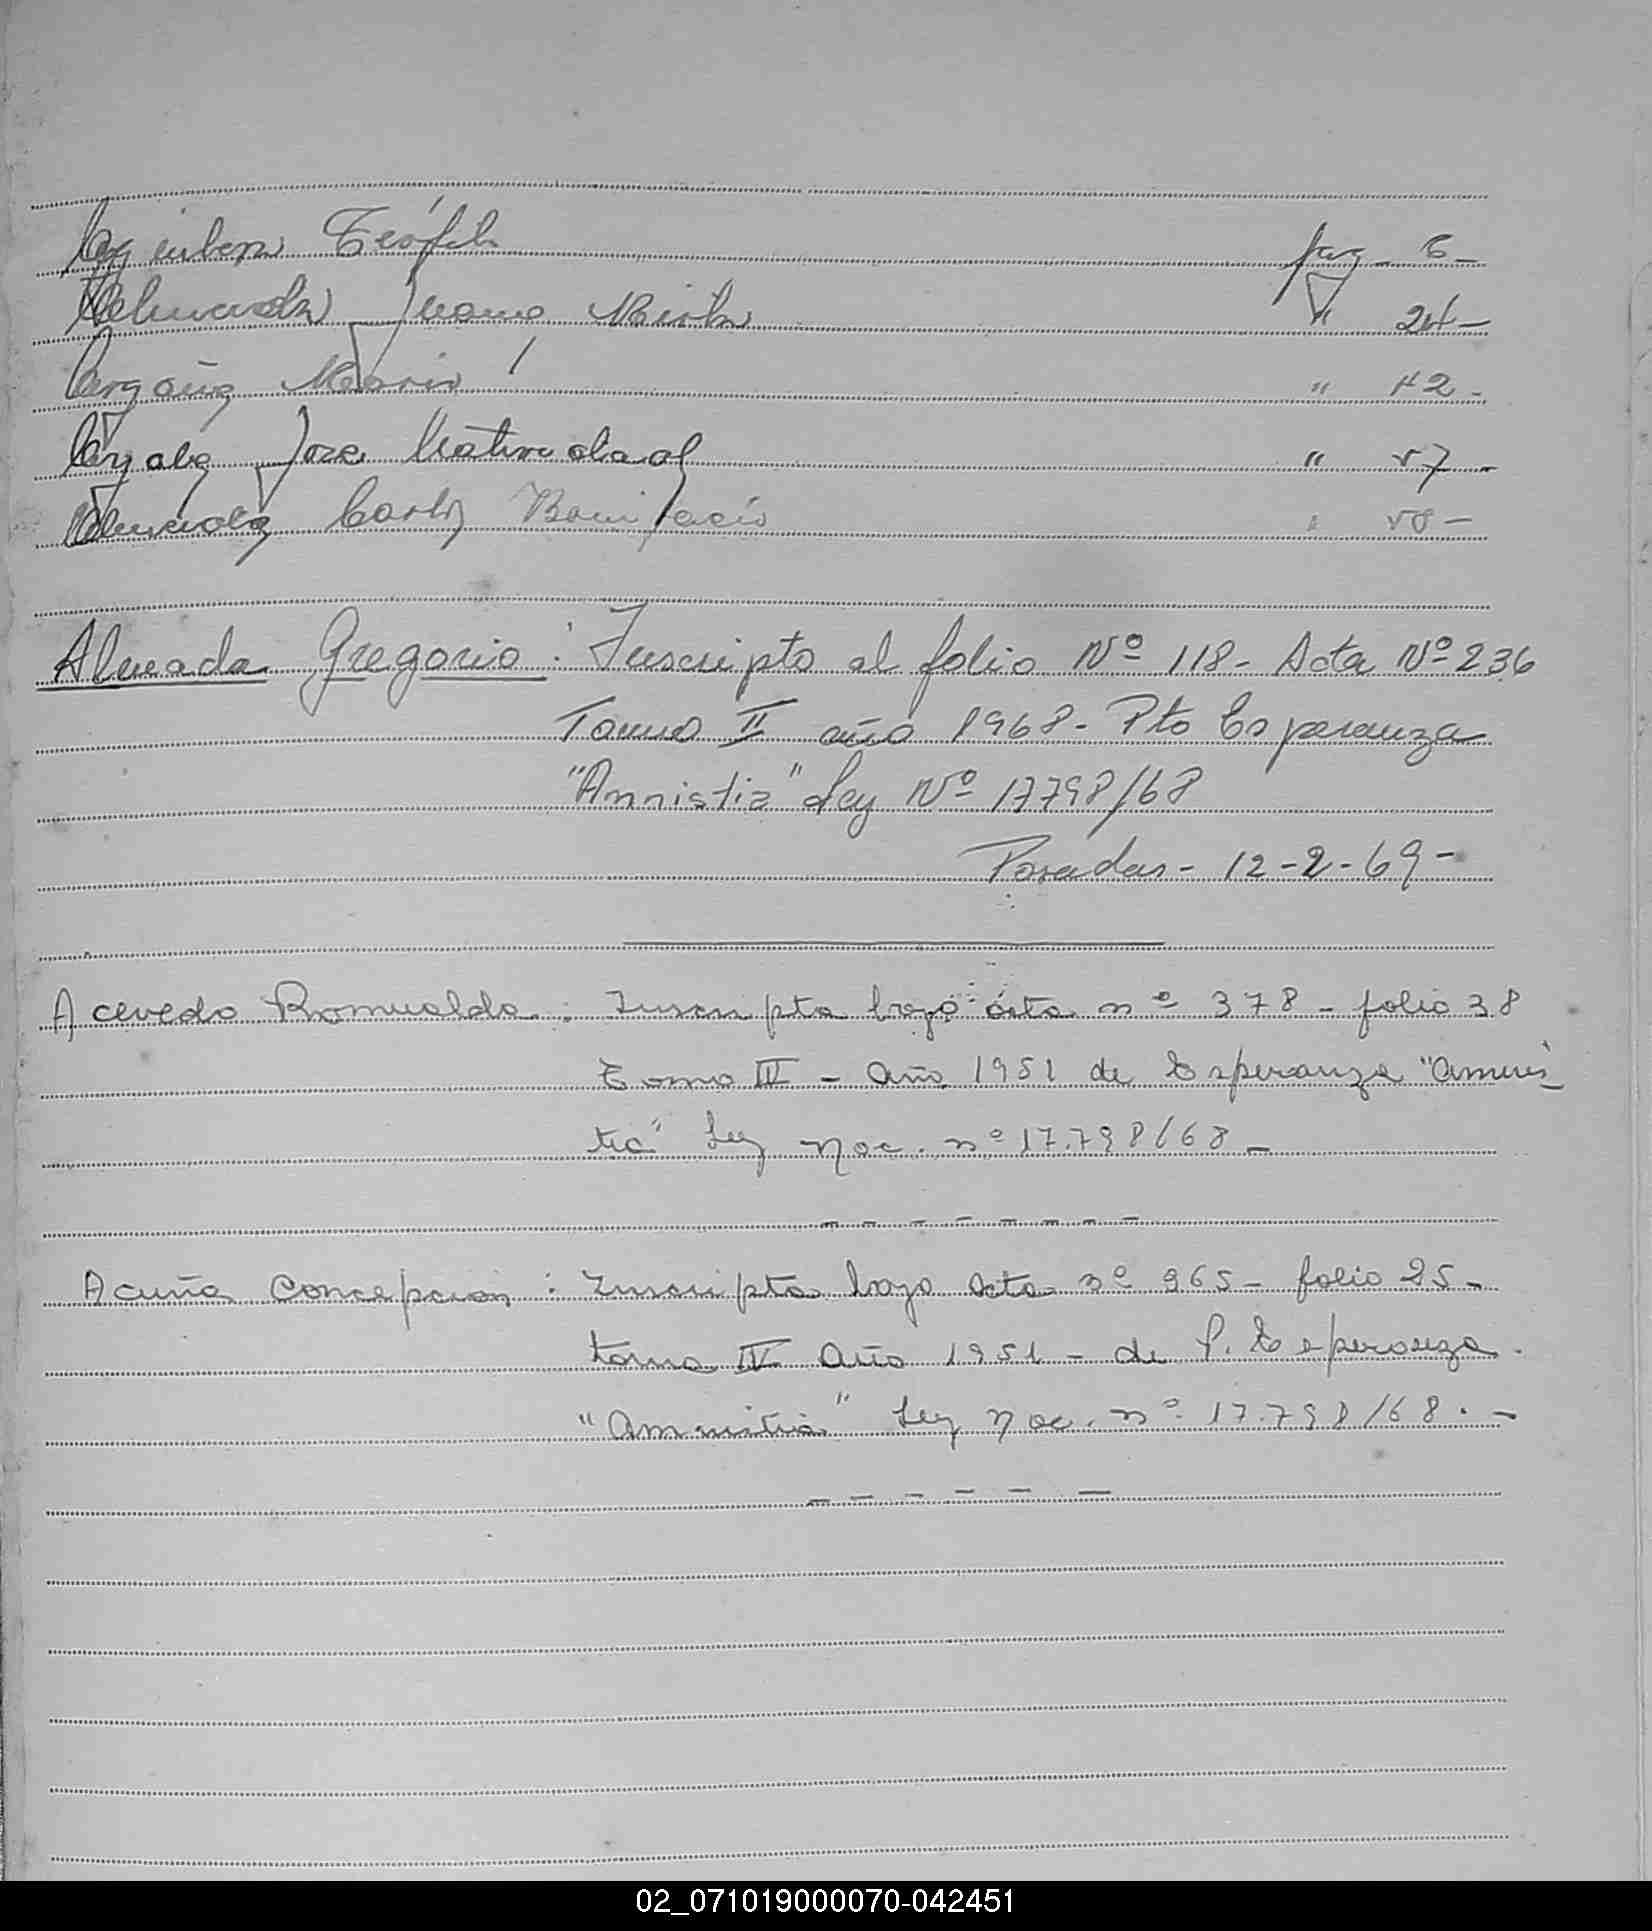 Teófilo pag - 6 -
Juana Mirta " 24 -
Maria " 42 -
Ayala José Natividad " 57 -
Carlos Bonifacio " 58 -
Alvarada Gregorio : Inscripto al folio Nº 118 - Acta Nº 236
Tomo II año 1968 - Pto Esperanza
"Amnistia" Ley Nº 17798/68
Posadas - 12-2-69 -
Acevedo Romualda : Inscripta bajo acta nº 378 - folio 38
Tomo IV - Año 1951 de Esperanza "Amnis
tia" Ley Nac. nº 17.798/68 -
Acuña Concepcion : Inscripta bajo acta nº 365 - folio 25 -
tomo IV Año 1951 - de P. Esperanza.
"Amnistia" Ley Nac. nº 17.798/68. -
02_071019000070-042451